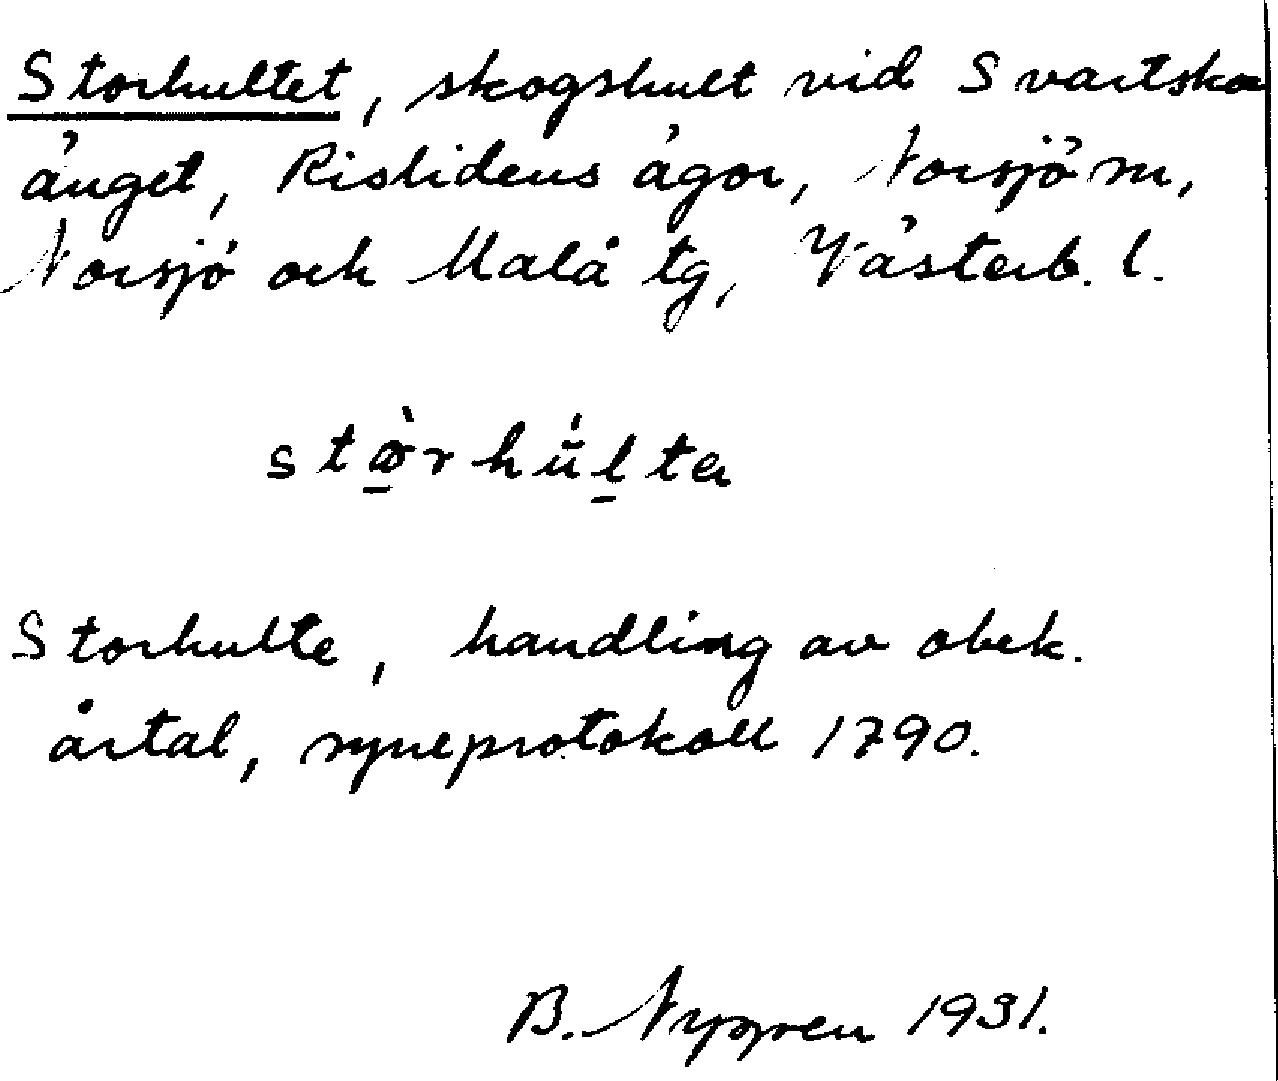 Storhultet, skogshult vid Svartska
änget, Rislidens ägor, Norsjö sn,
Norsjö och Malå tg, Västerb. l.
Storhulte, handling av obek.
årtal, syneprotokoll 1790.
B. Nygren 1931.